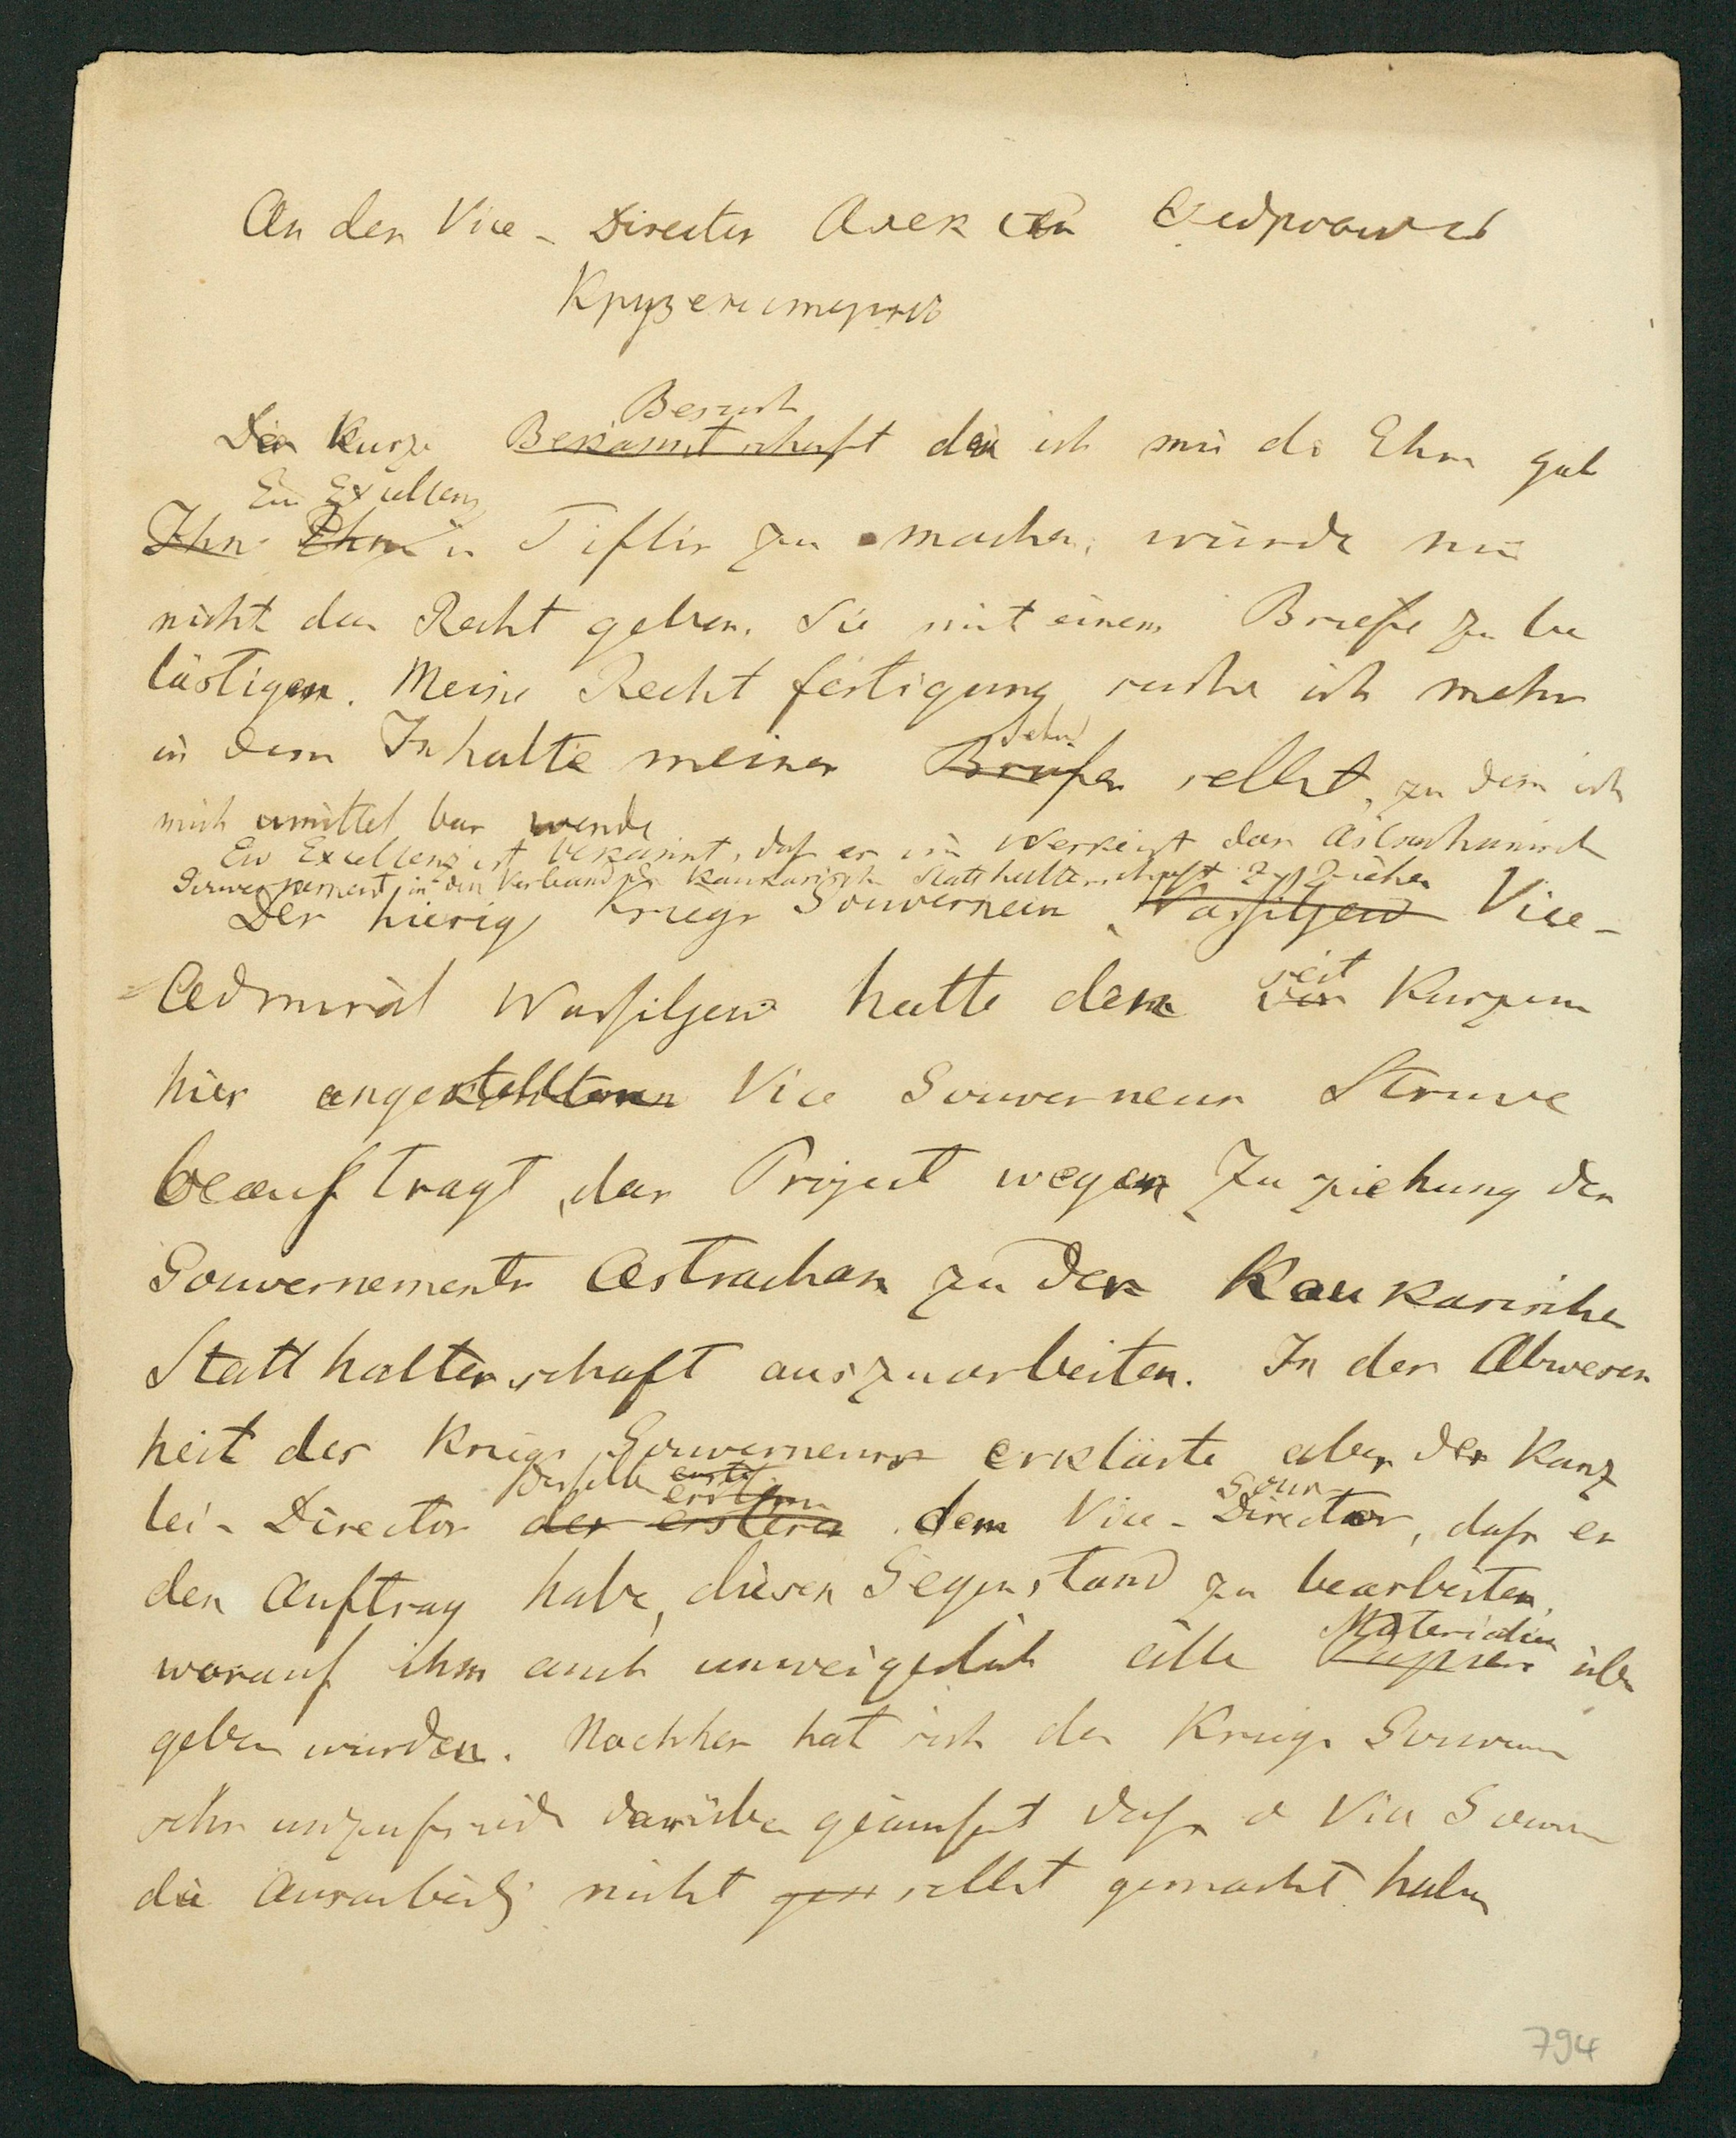 An den Vice-Director Алексѣй
Крузенштернъ
Besuch
Der kurze Bekanntschaft den ich mir die Ehre gab
Ew Excellenz
Ihn Ehre in Tiflis zu machen, würde mir
nicht das Recht geben, Sie mit einem Briefe zu be
lästigen. Meine Recht fertigung suche ich mehr
in dem Inhalte meines Briefes selbst, zu dem ich
mich unmittel bar wende
Ew Excellenz ist bekannt, daß es im Werke ist das Astrachanisch
Gouvernement in den Verband der Kaukasisch Statthalterschaft zu ziehen
Der hiesige Kriegs Gouverneur Wassiljew Vice-
seit
Admiral Wassiljew hatte dem vor Kurzem
hier angestellten Vice Gouverneur Struve
beauftragt, das Project wegen Zuziehung des
Gouvernements Astrachan zu der Kaukasischen
Statthalterschaft auszuarbeiten. In der Abwesen
heit des Kriegs Gouverneurs erklärte aber der Kanz
Derselbe erste erstern Gour
lei-Director der erstere dem Vice-Director, daß er
den Auftrag habe, diesen Gegenstand zu bearbeiten,
Materialien
worauf ihm auch unweigerlich alle Papiere über
geben wurden. Nachher hat sich der Kriegs Gouvern
sehr unzufrieden darüber geäußert daß d Vice Gouvern
die Ausarbeitg nicht selbst gemacht habe
794